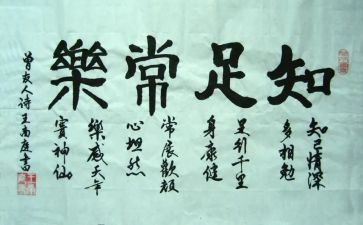 知足常樂
知己情深
多相勉
足到千里
身康健
常展歡顏
心坦然
樂感天年
賽神仙
友人诗王尚庭書